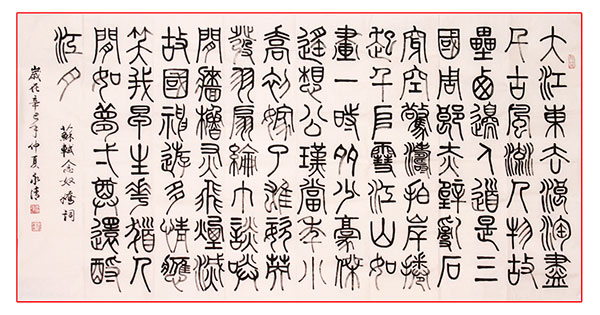 大江東去浪淘盡
千古風流人物故
壘西邊人道是三
國周郎赤壁亂石
穿空驚濤拍岸捲
起千堆雪江山如
畫一時多少豪傑
遙想公瑾當年小
喬初嫁了雄姿英
發羽扇綸巾談笑
間檣櫓灰飛煙滅
故國神遊多情應
笑我早生華髮人
間如夢一尊還酹
江月
蘇軾念奴嬌詞
歲在辛巳年仲夏永清